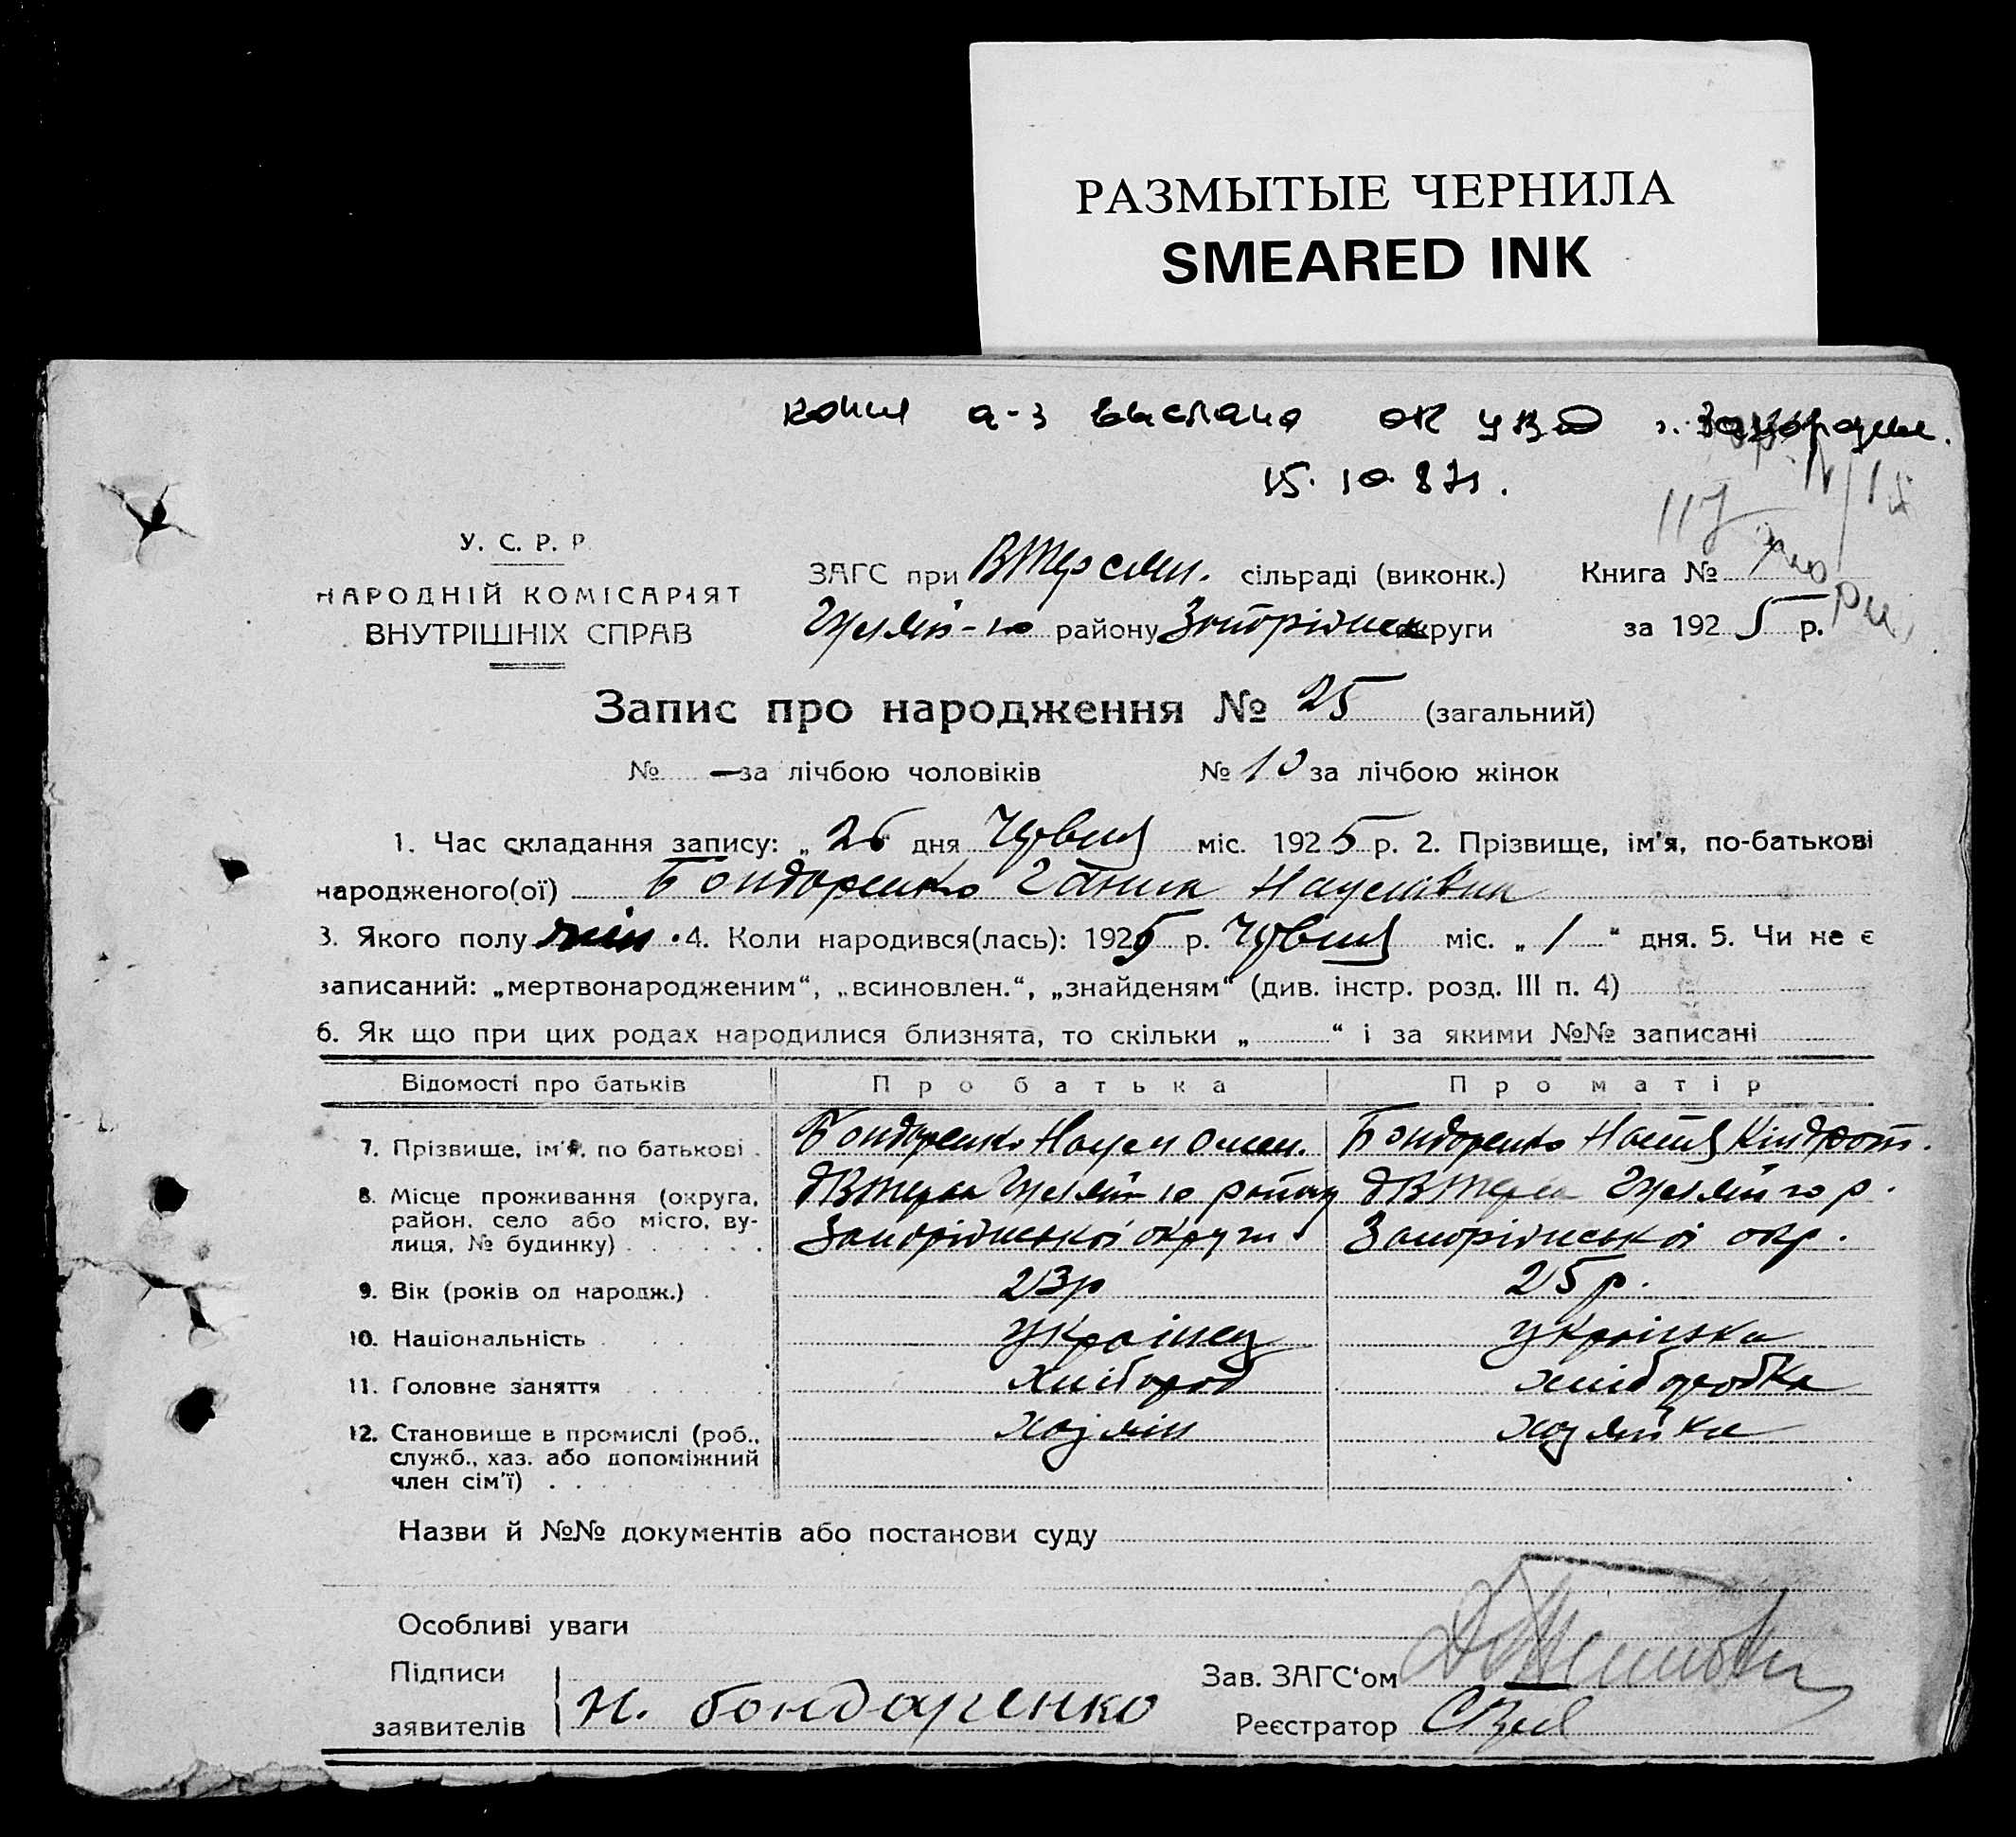 РАЗМЫТЫЕ ЧЕРНИЛА
SMEARED INK
копия а-з выслана
15. 10. 87г.
У. С. Р. Р.
НАРОДНІЙ КОМІСАРІЯТ
ВНУТРІШНІХ СПРАВ
ЗАГС при сільраді (виконк.)
Книга №
району округи
за 1925 р.
Запис про народження № 25 (загальний)
№ — за лічбою чоловіків
№ 10 за лічбою жінок
1. Час складання запису: „26“ дня Червня міс. 1925 р. 2. Прізвище, ім'я, по-батькові
народженого(ої) Бондаренко Ганна Наумівна
3. Якого полу жін. 4. Коли народився(лась): 1925 р. Червня міс. „1“ дня. 5. Чи не є
записаний: „мертвонародженим“, „всиновлен.“, „знайденям“ (див. інстр. розд. III п. 4)
6. Як що при цих родах народилися близнята, то скільки „ “ і за якими №№ записані
Відомості про батьків
Про батька
Про матір
7. Прізвище, ім'я, по батькові
Бондаренко Наум Омел.
Бондаренко Настя Кіндрат.
8. Місце проживання (округа,
район, село або місто, ву-
лиця, № будинку)
Запоріжської округи
Запоріжської окр.
9. Вік (років од народж.)
23р
25р.
10. Національність
Українец
Українка
11. Головне заняття
Хлібороб
хлібробка
12. Становище в промислі (роб.,
служб., хаз. або допоміжний
член сім'ї)
хазяїн
хазяйка
Назви й №№ документів або постанови суду
Особливі уваги
Підписи
заявителів
Н. Бондаренко
Зав. ЗАГС'ом
Реєстратор